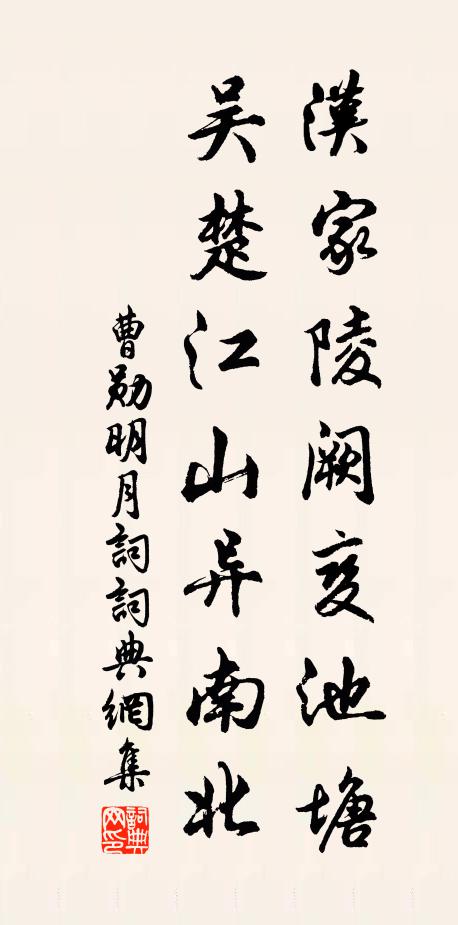 漢家陵闕变池塘
吴楚江山异南北
曹勛明月詞詞典網集
詞典網印